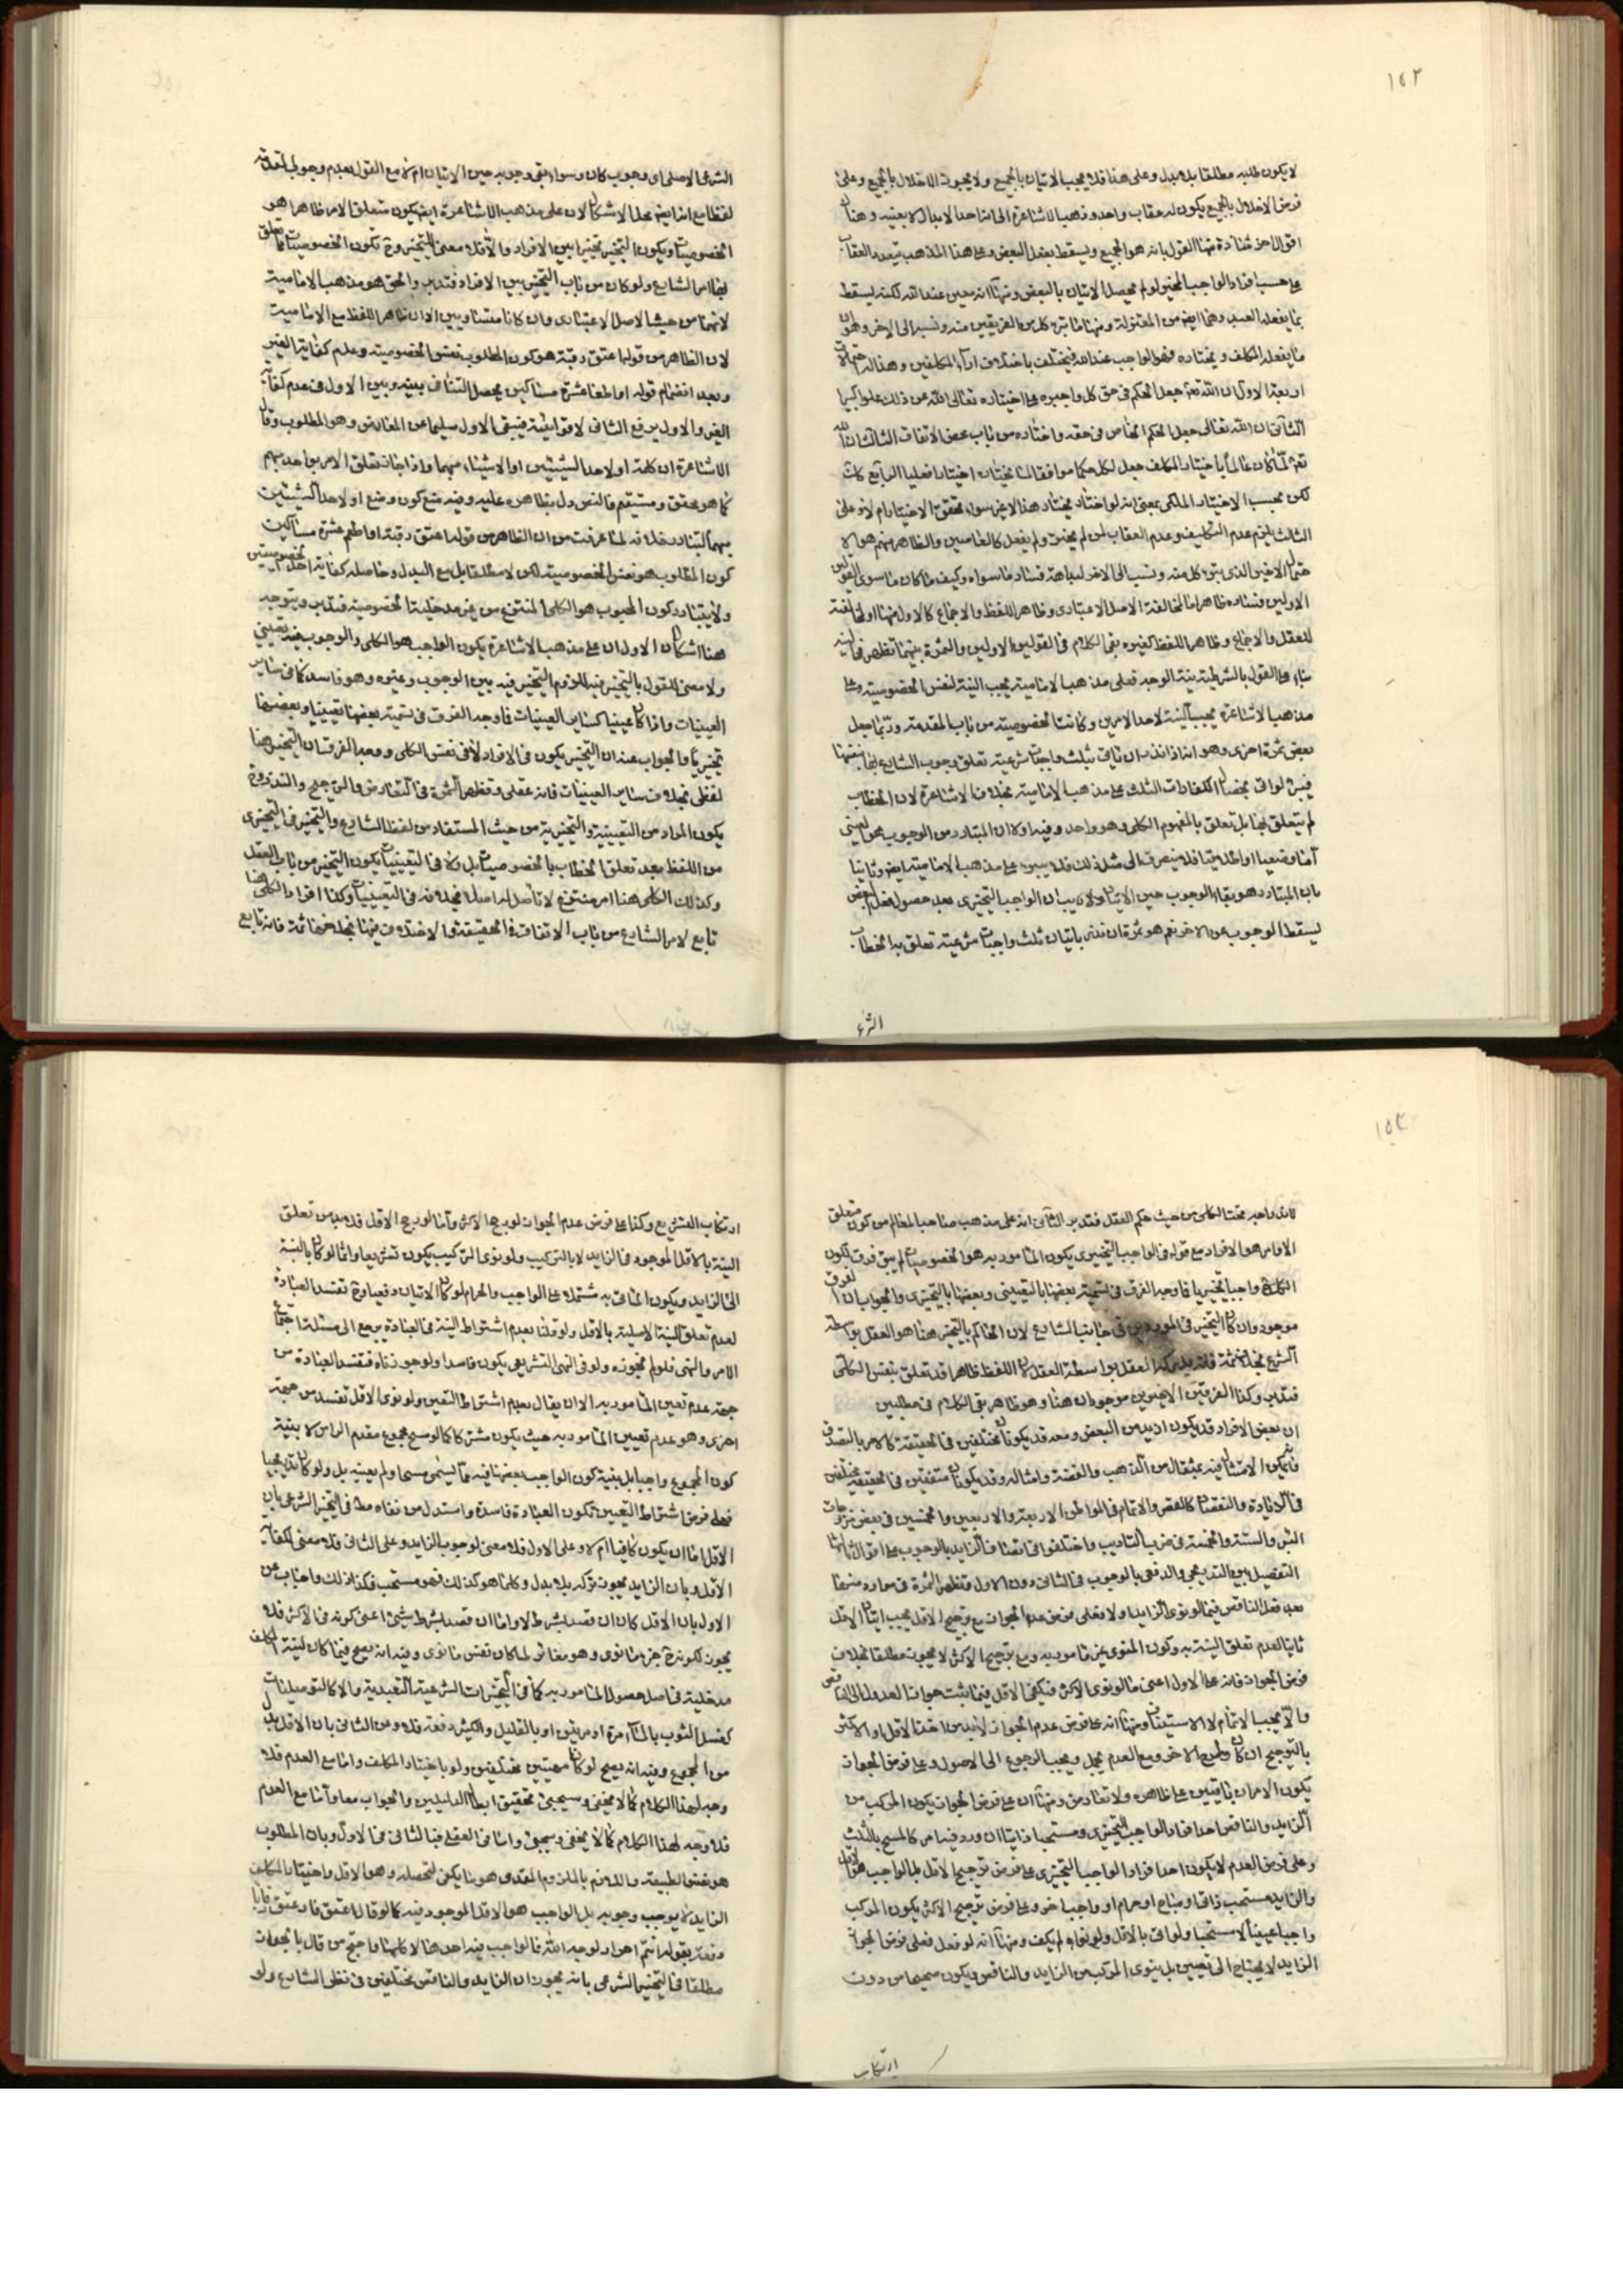 ١٥٢
لا يكون طلبه مطلقا بلا بدل وعلى هذا فلا يجب الاتيان بالجميع ولا يجوز الاخلال بالجميع وعلى
فرض الاخلال بالجميع يكون له عقاب واحد وذهب الاشاعرة الى انه احد الابدال لا بعينه وهنا
اقوال اخر شاذة منها القول بانه هو الجميع ويسقط بفعل البعض وعلى هذا المذهب يتعدد العقاب
على حسب افراد الواجب المخير لو لم يحصل الاتيان بالبعض ومنها انه معين عند الله لكنه يسقط
بما يفعله العبد وهما ايضا من المعتزلة ومنها ما تبرء كل من الفريقين منه ونسبه الى الاخر وهو ان
ما يفعله المكلف ويختاره فهو الواجب عند الله فيختلف باختلاف اراء المكلفين وهذا له احتمالات
اربعة الاول ان الله تعالى جعل الحكم في حق كل واجبره على اختياره تعالى الله عن ذلك علوا كبيرا
الثاني ان الله تعالى جعل الحكم الخاص في حقه واختاره من باب محض الاتفاق الثالث ان الله
تعالى لما كان عالما باختيار المكلف جعل لكل حكما موافقا لما يختاره اختيارا فعليا الرابع كالثالث
لكن بحسب الاختيار الملكي بمعنى انه لو اختار يختار هذا لا غير سواء تحقق الاختيار ام لا وعلى
الثالث يلزم عدم التكليف وعدم العقاب لمن لم يختر ولم يفعل كالعاصين والظاهر منهم هو الا
حتمال الاخير الذي تبرء كل منه ونسب الى الاخر لبداهة فساد ما سواه وكيف ما كان ما سوى القولين
الاولين فساده ظاهر اما لمخالفة الاصل الاعتباري وظاهر اللفظ والاجماع كالاول منها او لمخالفة
للعقل والاجماع وظاهر اللفظ كغيره بقي الكلام في القولين الاولين والثمرة بينهما تظهر في النية
بناء على القول بالشرطية نية الوجه فعلى مذهب الامامية يجب النية لنفس الخصوصية وعلى
مذهب الاشاعرة يجب النية لاحد الامرين وكانت الخصوصية من باب المقدمة وربما جعل
بعض ثمرة اخرى وهو انه اذا نذر ان ياتي بثلث واجبات شرعية تعلق وجوب الشارع بها بنفسها
فيبرء لو اتى بخصال الكفارات الثلث على مذهب الامامية بخلاف الاشاعرة لان الخطاب
لم يتعلق بها بل تعلق بالمفهوم الكلي وهو واحد وفيه اولا ان المتبادر من الوجوب هو العيني
يسقط الوجوب عن الاخر نعم هو ثمرة ان نذر باتيان ثلث واجبات شرعية تعلق به الخطاب
الشرع
الشرعي الاصلي اي وجوب كان وسواء بقي وجوبه حين الاتيان ام لا مع القول بعدم وجوب المقدمة
لفظا مع انه ايضا محل الاشكال لان على مذهب الاشاعرة ايضا يكون متعلق الامر ظاهرا هو
الخصوصيات ويكون التخيير تخييرا بين الافراد والا فلا معنى للتخيير وح تكون الخصوصيات متعلق
بها امر الشارع ولو كان من باب التخيير بين الافراد فتدبر والحق هو مذهب الامامية
لانهما من حيث الاصل الاعتباري وان كانا متساويين الا ان ظاهر اللفظ مع الامامية
لان الظاهر من قوله اعتق رقبة هو كون المطلوب نفس الخصوصية وعدم كفاية الغير
وبعد انضمام قوله او اطعم عشرة مساكين يحصل التنافي بينه وبين الاول في عدم كفاية
الغير والاول يرفع الثاني لاقوائيته فيبقى الاول سليما عن المعارض وهو المطلوب وقال
الاشاعرة ان كلمة او لاحد الشيئين او الاشياء مبهما واذا جاز تعلق الامر بواحد مبهم
كما هو محقق ومستقيم فالنص دل بظاهره عليه وفيه منع كون وضع او لاحد الشيئين
مبهما لتبادر خلافه لما عرفت من ان الظاهر من قوله اعتق رقبة او اطعم عشرة مساكين
كون المطلوب هو نفس الخصوصية لكن لا مطلقا بل مع البدل وحاصله كفاية احد الخصوصيتين
ولا يتبادر كون المطلوب هو الكلي المنتزع من غير مدخلية الخصوصية فتدبر ويتوجه
هنا اشكال الاول ان على مذهب الاشاعرة يكون الواجب هو الكلي والوجوب فيه عيني
ولا معنى للقول بالتخيير فيه للزوم التخيير فيه بين الوجوب وغيره وهو فاسد كما في سائر
العينيات واذا كان عينيا كسائر العينيات فما وجه الفرق في تسمية بعضها تعيينيا وبعضها
تخييريا والجواب عنه ان التخيير يكون في الافراد لا في نفس الكلي ووجه الفرق ان التخيير هنا
لفظي بخلاف سائر العينيات فانه عقلي وتظهر الثمرة في التعارض والترجيح والنذر وح
يكون المراد من التعيينية والتخييرية من حيث المستفاد من لفظ الشارع والتخيير في التخييري
من اللفظ بعد تعلق الخطاب بالخصوصيات بل ولا في التعيينيات يكون التخيير من باب العقل
وكذلك الكلي هنا امر منتزع لا تاصل له اصلا بخلافه في التعيينيات وكذا افراد الكلي هنا
تابع لامر الشارع من باب الاتفاق في الحقيقة والاختلاف فيها بخلافها ثمة فانه تابع
١٥٣
لاندراجه تحت الكلي من حيث حكم العقل فتدبر الثاني انه على مذهب صاحب المعالم من كون متعلق
الاوامر هو الافراد مع قوله في الواجب التخييري يكون المامور به هو الخصوصيات لم يبق فرق لكون
الكل ح واجبا تخييريا فما وجه الفرق في تسمية بعضها بالتعييني وبعضها بالتخييري والجواب ان الفرق
موجود وان كان التخيير في الموردين في جانب الشارع لان الحاكم بالتخيير هنا هو العقل بواسطة
الشرع بخلافه ثمة فانه يدركه العقل بواسطة العقل لان اللفظ ظاهرا قد تعلق بنفس الكلي
فتدبر وكذا الفرقين الاخيرين موجودان هنا وهو ظاهر بقي الكلام في مطلبين
ان بعض الافراد قد يكون ازيد من البعض وبعد قد يكونان مختلفين في الحقيقة كالامر بالتصدق
فيمكن الامتثال فيه بمثقال من الذهب والفضة وامثاله وقد يكونان متفقين في الحقيقة مختلفين
في الزيادة والنقصان كالقصر والاتمام في المواطن الاربعة والاربعين والخمسين في بعض منزوحات
البئر والستة والخمسة في ضرب التاديب واختلفوا في اتصاف الزايد بالوجوب على اقوال ثالثها
التفصيل بين التدريجي والدفعي بالوجوب في الثاني دون الاول وتظهر الثمرة في موارد منها
ثانيا لعدم تعلق النية به وكون المنوي غير مامور به ومع ترجيح الاكثر لا يجوز مطلقا بخلاف
فرض الجواز فانه على الاول اعنى ما لو نوى الاكثر فيكفي الاقل فيما ثبت جواز العدول الى الناقص
والا يجب الاتمام لا الاستيناف ومنها انه على فرض عدم الجواز لا بد من اخذ الاقل او الاكثر
بالترجيح ان كان وطرح الاخر ومع العدم يحمل ويجب الرجوع الى الاصول وعلى فرض الجواز
يكون الامران باقيين على ظاهره ولا تعارض ومنها ان على فرض الجواز يكون المركب من
الزايد والناقص احد افراد الواجب التخييري ومستحبا ذاتيا ان ورد فيه امر كالمسح بالثلث
وعلى فرض العدم لا يكون احد افراد الواجب التخييري على فرض ترجيح الاقل بل الواجب هو الاقل
والزايد مستحب ذاتي او مباح او حرام او واجب اخر وعلى فرض ترجيح الاكثر يكون المركب
واجبا عينيا لا مستحبا ولو اتى بالاقل ولو نواه لم يكف ومنها انه لو فعل فعلى فرض الجواز
الزايد لا يحتاج الى تعيين بل ينوي المركب من الزايد والناقص ويكون صحيحا من دون
ارتكاب
ارتكاب التشريع وكذا على فرض عدم الجواز لو رجح الاكثر واما لو رجح الاقل فلا بد من تعلق
النية بالاقل الموجود في الزايد لا بالتركيب ولو نوى التركيب يكون تشريعا واثما لو كان بالنسبة
الى الزايد ويكون الماتي به مشتملا على الواجب والحرام لو كان الاتيان دفعيا وح تفسد العبادة
لعدم تعلق النية الاصلية بالاقل ولو قلنا بعدم اشتراط النية في العبادة يرجع الى مسئلة اجتماع
الامر والنهي فلو لم نجوزه ولو في النهي التشريعي يكون فاسدا ولو جوزناه فتفسد العبادة من
جهة عدم تعين المامور به الا ان يقال بعدم اشتراط التعين ولو نوى الاقل تفسد من جهة
اخرى وهو عدم تعيين المامور به حيث يكون مشتركا كما لو مسح مجموع مقدم الراس لا بنية
كون المجموع واجبا بل بنية كون الواجب بعضها فيه مما يسمى مسحا ولم يعينه بل ولو كان تدريجيا
فعلى فرض اشتراط التعيين تكون العبادة فاسدة واستدل من نفاه مط في التخيير الشرعي بان
الاقل اما ان يكون كافيا ام لا وعلى الاول فلا معنى لوجوب الزايد وعلى الثاني فلا معنى لكفاية
الاقل وبان الزايد يجوز تركه بلا بدل وكلما هو كذلك فهو مستحب فكذا ذلك واجاب عن
الاول بان الاقل كان ان قصد بشرط لا واما ان قصد بشرط شيئ اعنى كونه في الاكثر فلا
يجوز لكونه ح جزء ما نوى وهو مغاير لما كان نفس ما نوى وفيه انه يصح فيما كان لنية المكلف
مدخلية في اصل حصول المامور به كما في التخييرات الشرعية التعبدية والا كالتوصليات
كغسل الثوب بالماء مرة او مرتين او بالقليل والكثير دفعة فلا وعن الثاني بان الاقل بدل
من المجموع وفيه انه يصح لو كانا مهيتين مختلفتين ولو باختيار المكلف واما مع العدم فلا
وجه لهذا الكلام كما لا يخفى وسيجيئ تحقيق ابطال الدليلين والجواب معا واما مع العدم
فلا وجه لهذا الكلام كما لا يخفى وسيجيئ واما في العقلي فبالثاني في الاول وبان المطلوب
هو نفس الطبيعة واللازم بالملزوم المقدمي هو ما يكفي لتحصله وهو الاقل واختيار المكلف
الزايد لا يوجب وجوبه بل الواجب هو الاقل الموجود فيه كما لو قال اعتق
مطلقا في التخيير الشرعي بانه يجوز ان الزايد والناقص مختلفين في نظر الشارع ولو